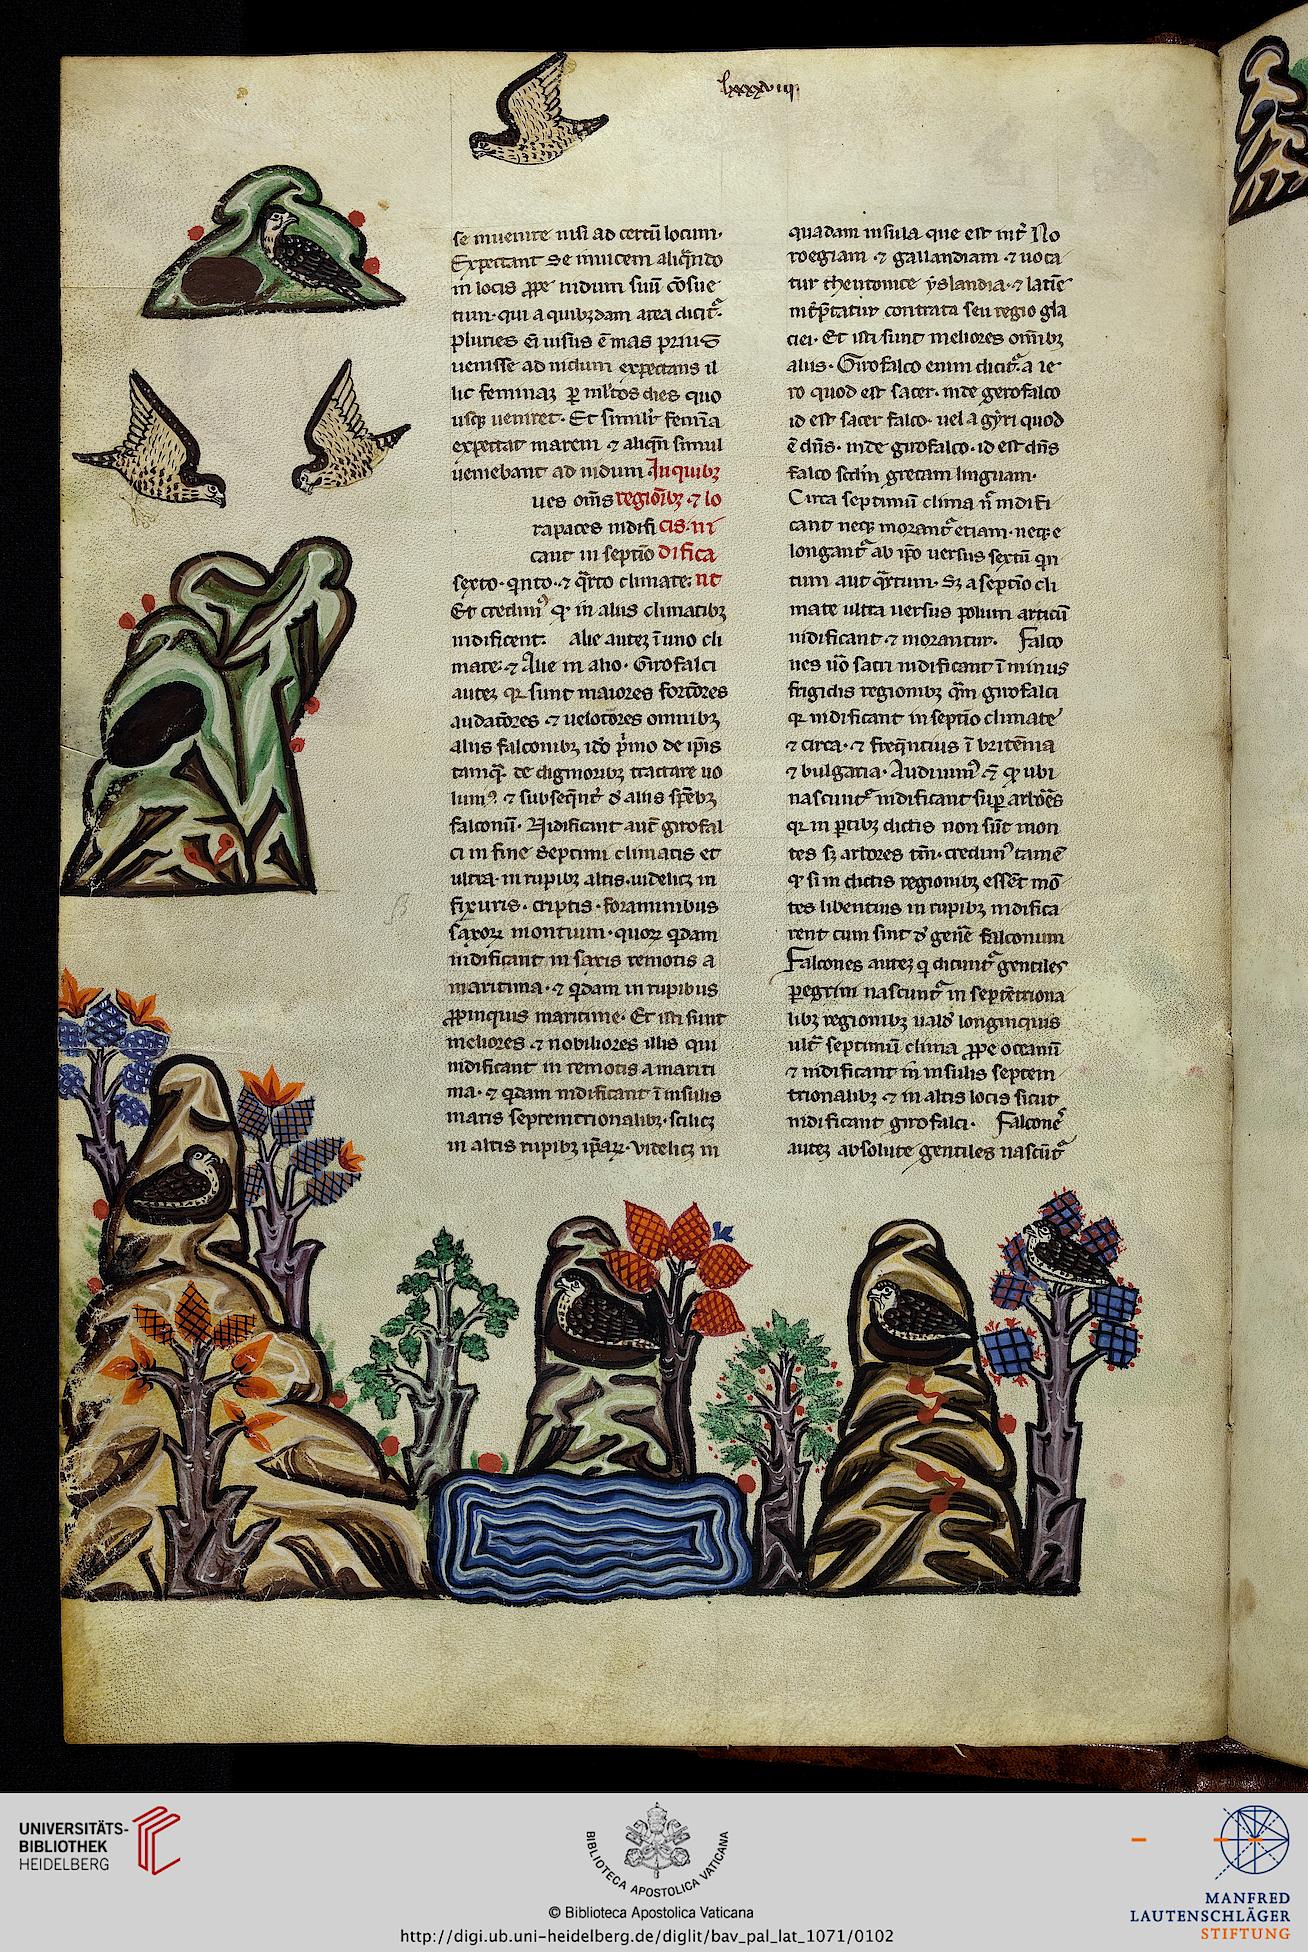 lxxxxviiij.
se inuenire nisi ad certū locum·
Expectant se inuicem aliqn̄do
in locis ꝓpe nidum suū cōsue
tum· qui a quibꝫdam area dicit᷑·
pluries eni uisus ē mas prius
uenisse ad nidum expectans il
lic feminaꝫ ꝑ ml̓tos dies quo
usqꝫ ueniret· Et simil̓r femīa
expectat marem ⁊ aliqn̄ simul
ueniebant ad nidum· In quibꝫ
ues om̄s regionibꝫ ⁊ lo
rapaces nidifi cis· ni
cant in septīo difica
sexto· qn̓to· ⁊ q̓rto climate: nt
Et credim᷒ ꝙ in aliis climatibꝫ
nidificent· alie auteꝫ ī uno cli
mate: ⁊ Alie in alio· Girofalci
auteꝫ qꝛ sunt maiores fortōres
audatōres ⁊ uelotōres omnibꝫ
aliis falconibꝫ iꝺo p̓mo de ip̄is
tamqͣ de dignioribꝫ tractare uo
lum᷒· ⁊ subseqn̄t̓ ꝺ aliis sp̄ēbꝫ
falconū· Nidificant aut̄ girofal
ci in fine septimi climatis et
ultra· in rupibꝫ altis· uideliꝫ in
fixuris· criptis· foraminibus
saxoꝝ montium· quoꝝ qͥdam
nidificant in saxis remotis a
maritima· ⁊ qͥdam in rupibus
ꝓpinquis maritime· Et isti sunt
meliores ⁊ nobiliores illis qui
nidificant in remotis a mariti
ma· ⁊ qͥdam nidificant ī insulis
maris septemtrionalibꝫ· sciliꝫ
in altis rupibꝫ ip̄aꝝ· videliꝫ in
quadam insula que est int̓ No
roegiam· ⁊ gallandiam· ⁊ uoca
tur theutonice ẏslandia· ⁊ latīe
int̓p̄tatur contrata seu regio gla
ciei· Et isti sunt meliores om̄ibꝫ
aliis· Girofalco enim dicit᷑ a ie
ro quod est sacer· inde gerofalco
id est sacer falco· uel a gẏri quod
ē dn̄s· inde girofalco· id est dn̄s
falco scd̄m grecam linguam·
Circa septimū clima n̄ nidifi
cant neqꝫ morant᷑ etiam· neqꝫ e
longant᷑ ab ip̄o uersus sextū qn̓
tum aut q̓rtum· Sꝫ a septīo cli
mate ultra uersus polum articū
nidificant ⁊ morantur· Falco
nes ūo sacri nidificant ī minus
frigidis regionibꝫ qͣm girofalci
qꝛ nidificant in septīo climate
⁊ circa· ⁊ freqn̄tius ī britēnia
⁊ bulgaria· Audiuim᷒ ēt ꝙ ubi
nascunt᷑ nidificant suꝑ arbōēs
qꝛ in ꝑtibꝫ dictis non sūt mon
tes sꝫ arbores tm̄· credim᷒ tamē
ꝙ si in dictis regionibꝫ essēt mō
tes libentius in rupibꝫ nidifica
rent cum sint ꝺ gen̄e falconum
Falcones auteꝫ q̓ dicunt᷑ gentiles
ꝑegrini nascunt᷑ in septētriona
libꝫ regionibꝫ ualꝺ longinquis
ult᷑ septimū clima ꝓpe oceanū
⁊ nidificant in insulis septem
trionalibꝫ ⁊ in altis locis sicut
nidificant girofalci· Falconēs
auteꝫ absolute gentiles nascūt᷑
UNIVERSITÄTS-
BIBLIOTHEK
HEIDELBERG
BIBLIOTECA APOSTOLICA VATICANA
© Biblioteca Apostolica Vaticana
http://digi.ub.uni-heidelberg.de/diglit/bav_pal_lat_1071/0102
MANFRED
LAUTENSCHLÄGER
STIFTUNG